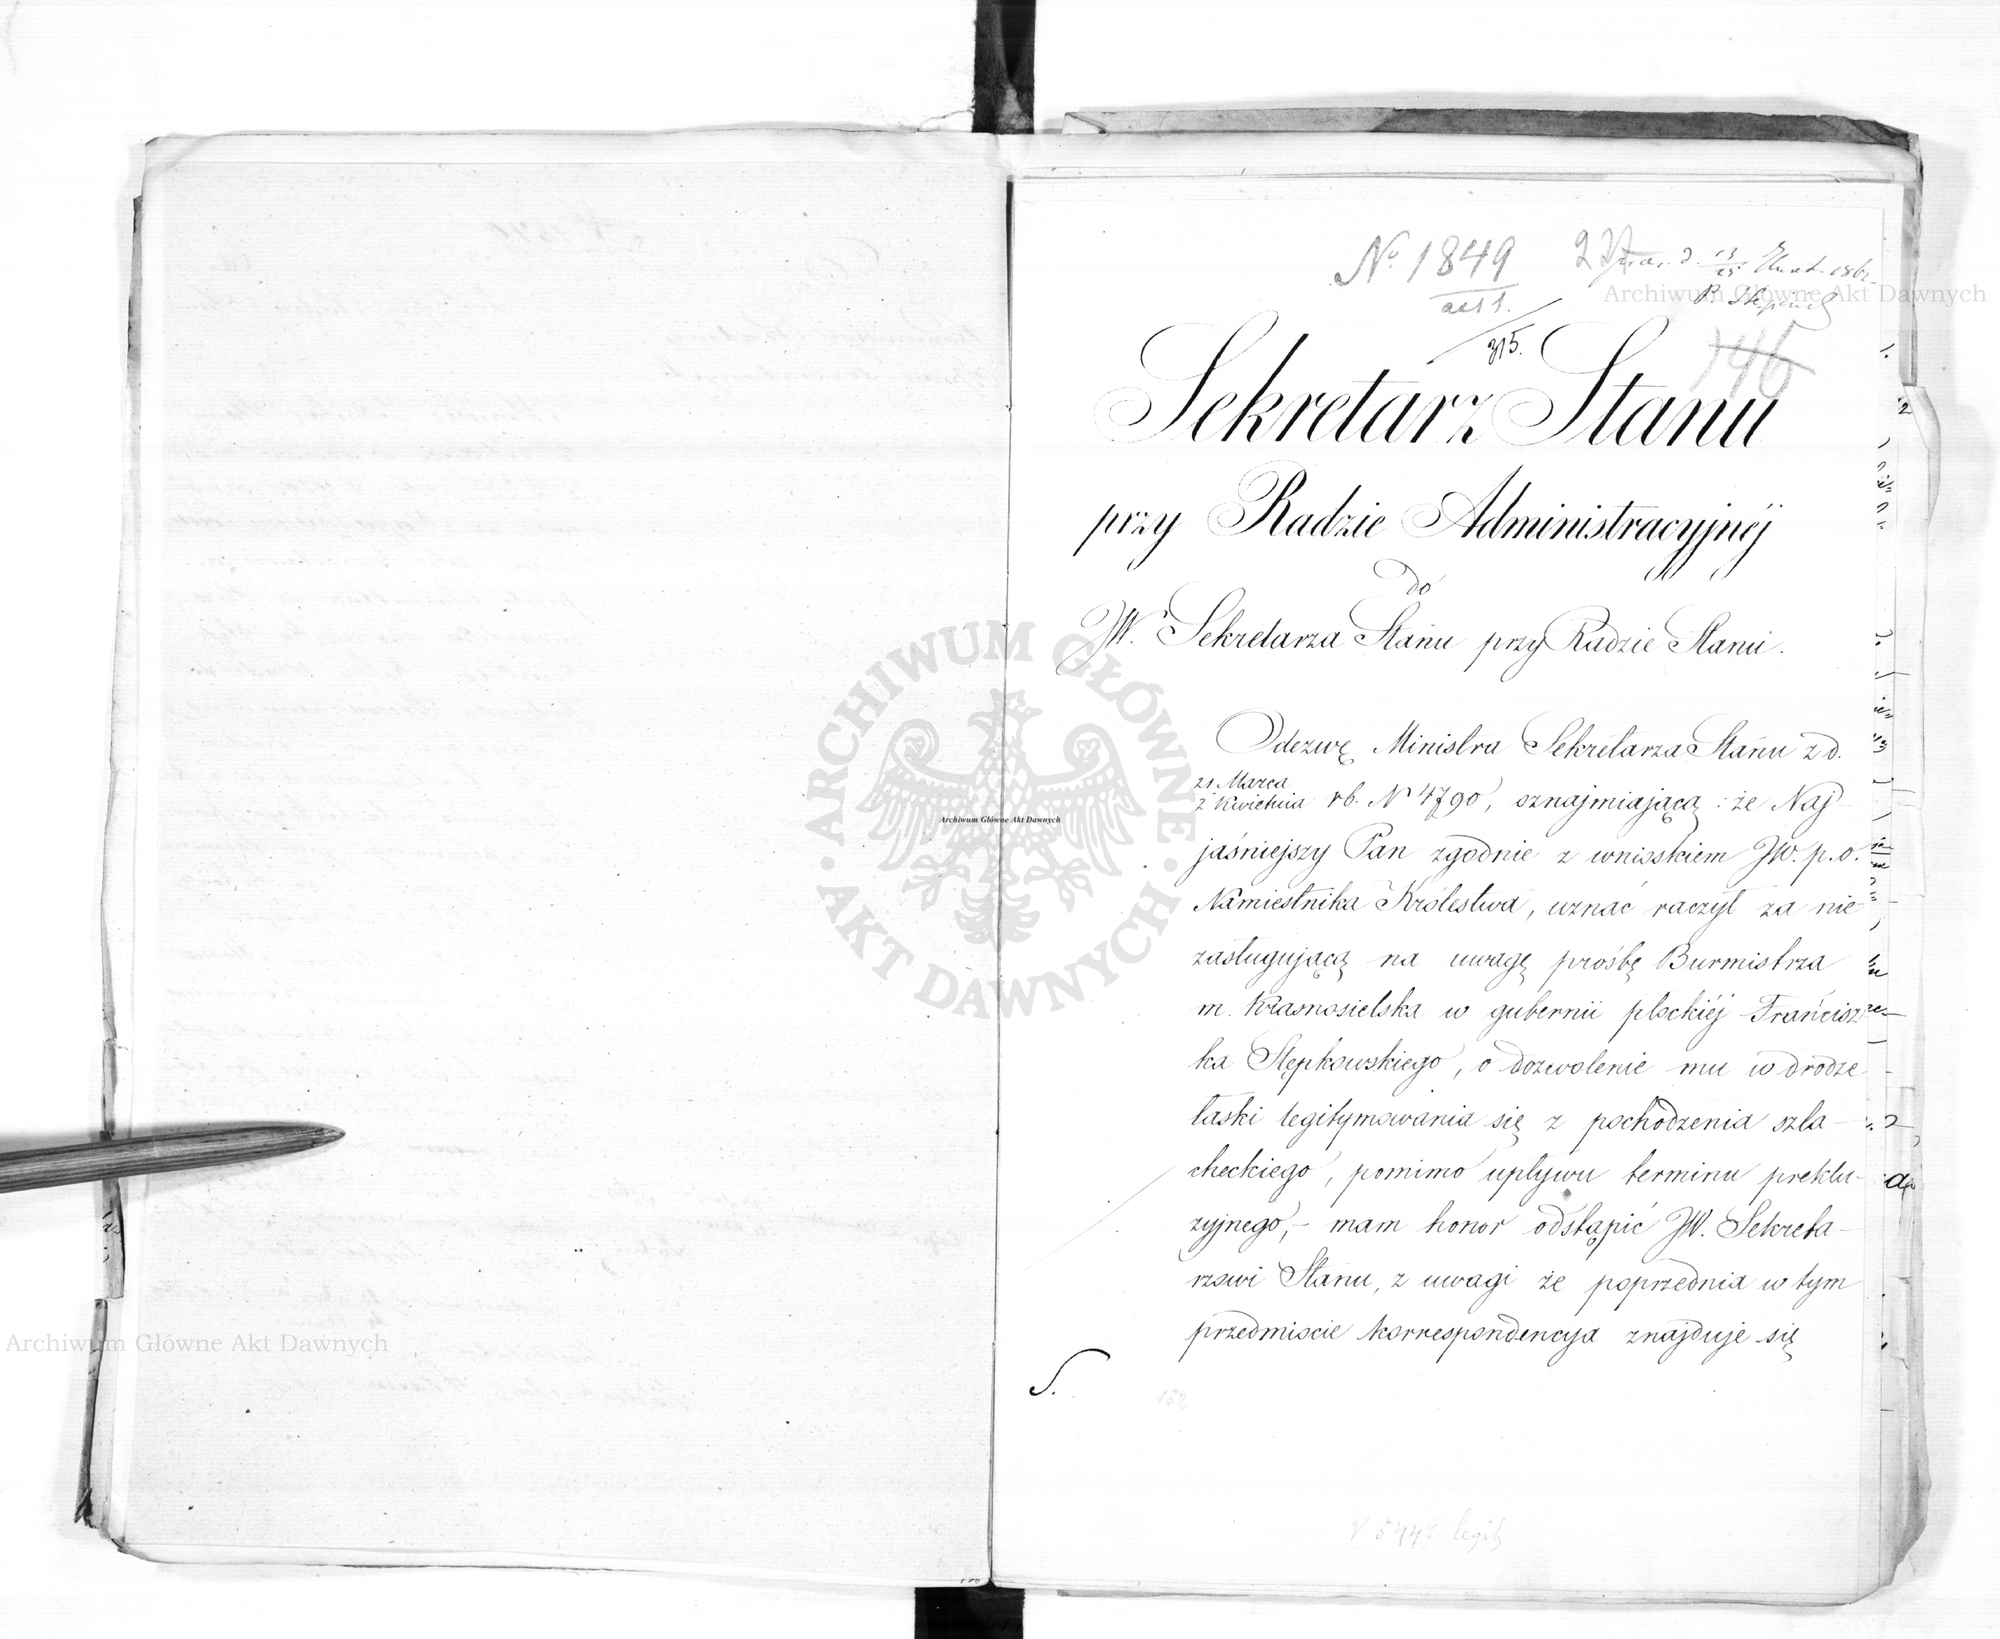 No 1849
act 1.
315.
146
Sekretarz Stanu
przy Radzie Administracyjnéj
do
JW. Sekretarza Stanu przy Radzie Stanu.
Odezwę Ministra Sekretarza Stanu z d.
21 Marca
2 Kwietnia rb. N 4790, oznajmiającą: że Naj-
jaśniejszy Pan zgodnie z wnioskiem JW. p.o.
Namiestnika Królestwa, uznać raczył za nie-
zasługującą na uwagę prośbę Burmistrza
m. Krasnosielska w gubernii płockiéj Francisz-
ka Stępkowskiego, o dozwolenie mu w drodze
łaski legitymowania się z pochodzenia szla-
checkiego, pomimo upływu terminu preklu-
zyjnego,- mam honor odstąpić JW. Sekreta-
rzowi Stanu, z uwagi że poprzednia w tym
przedmiocie korrespondencya znajduje się
S.
152
N 5447 legit
Archiwum Główne Akt Dawnych
Archiwum Główne Akt Dawnych
Archiwum Główne Akt Dawnych
ARCHIWUM GŁÓWNE
AKT DAWNYCH